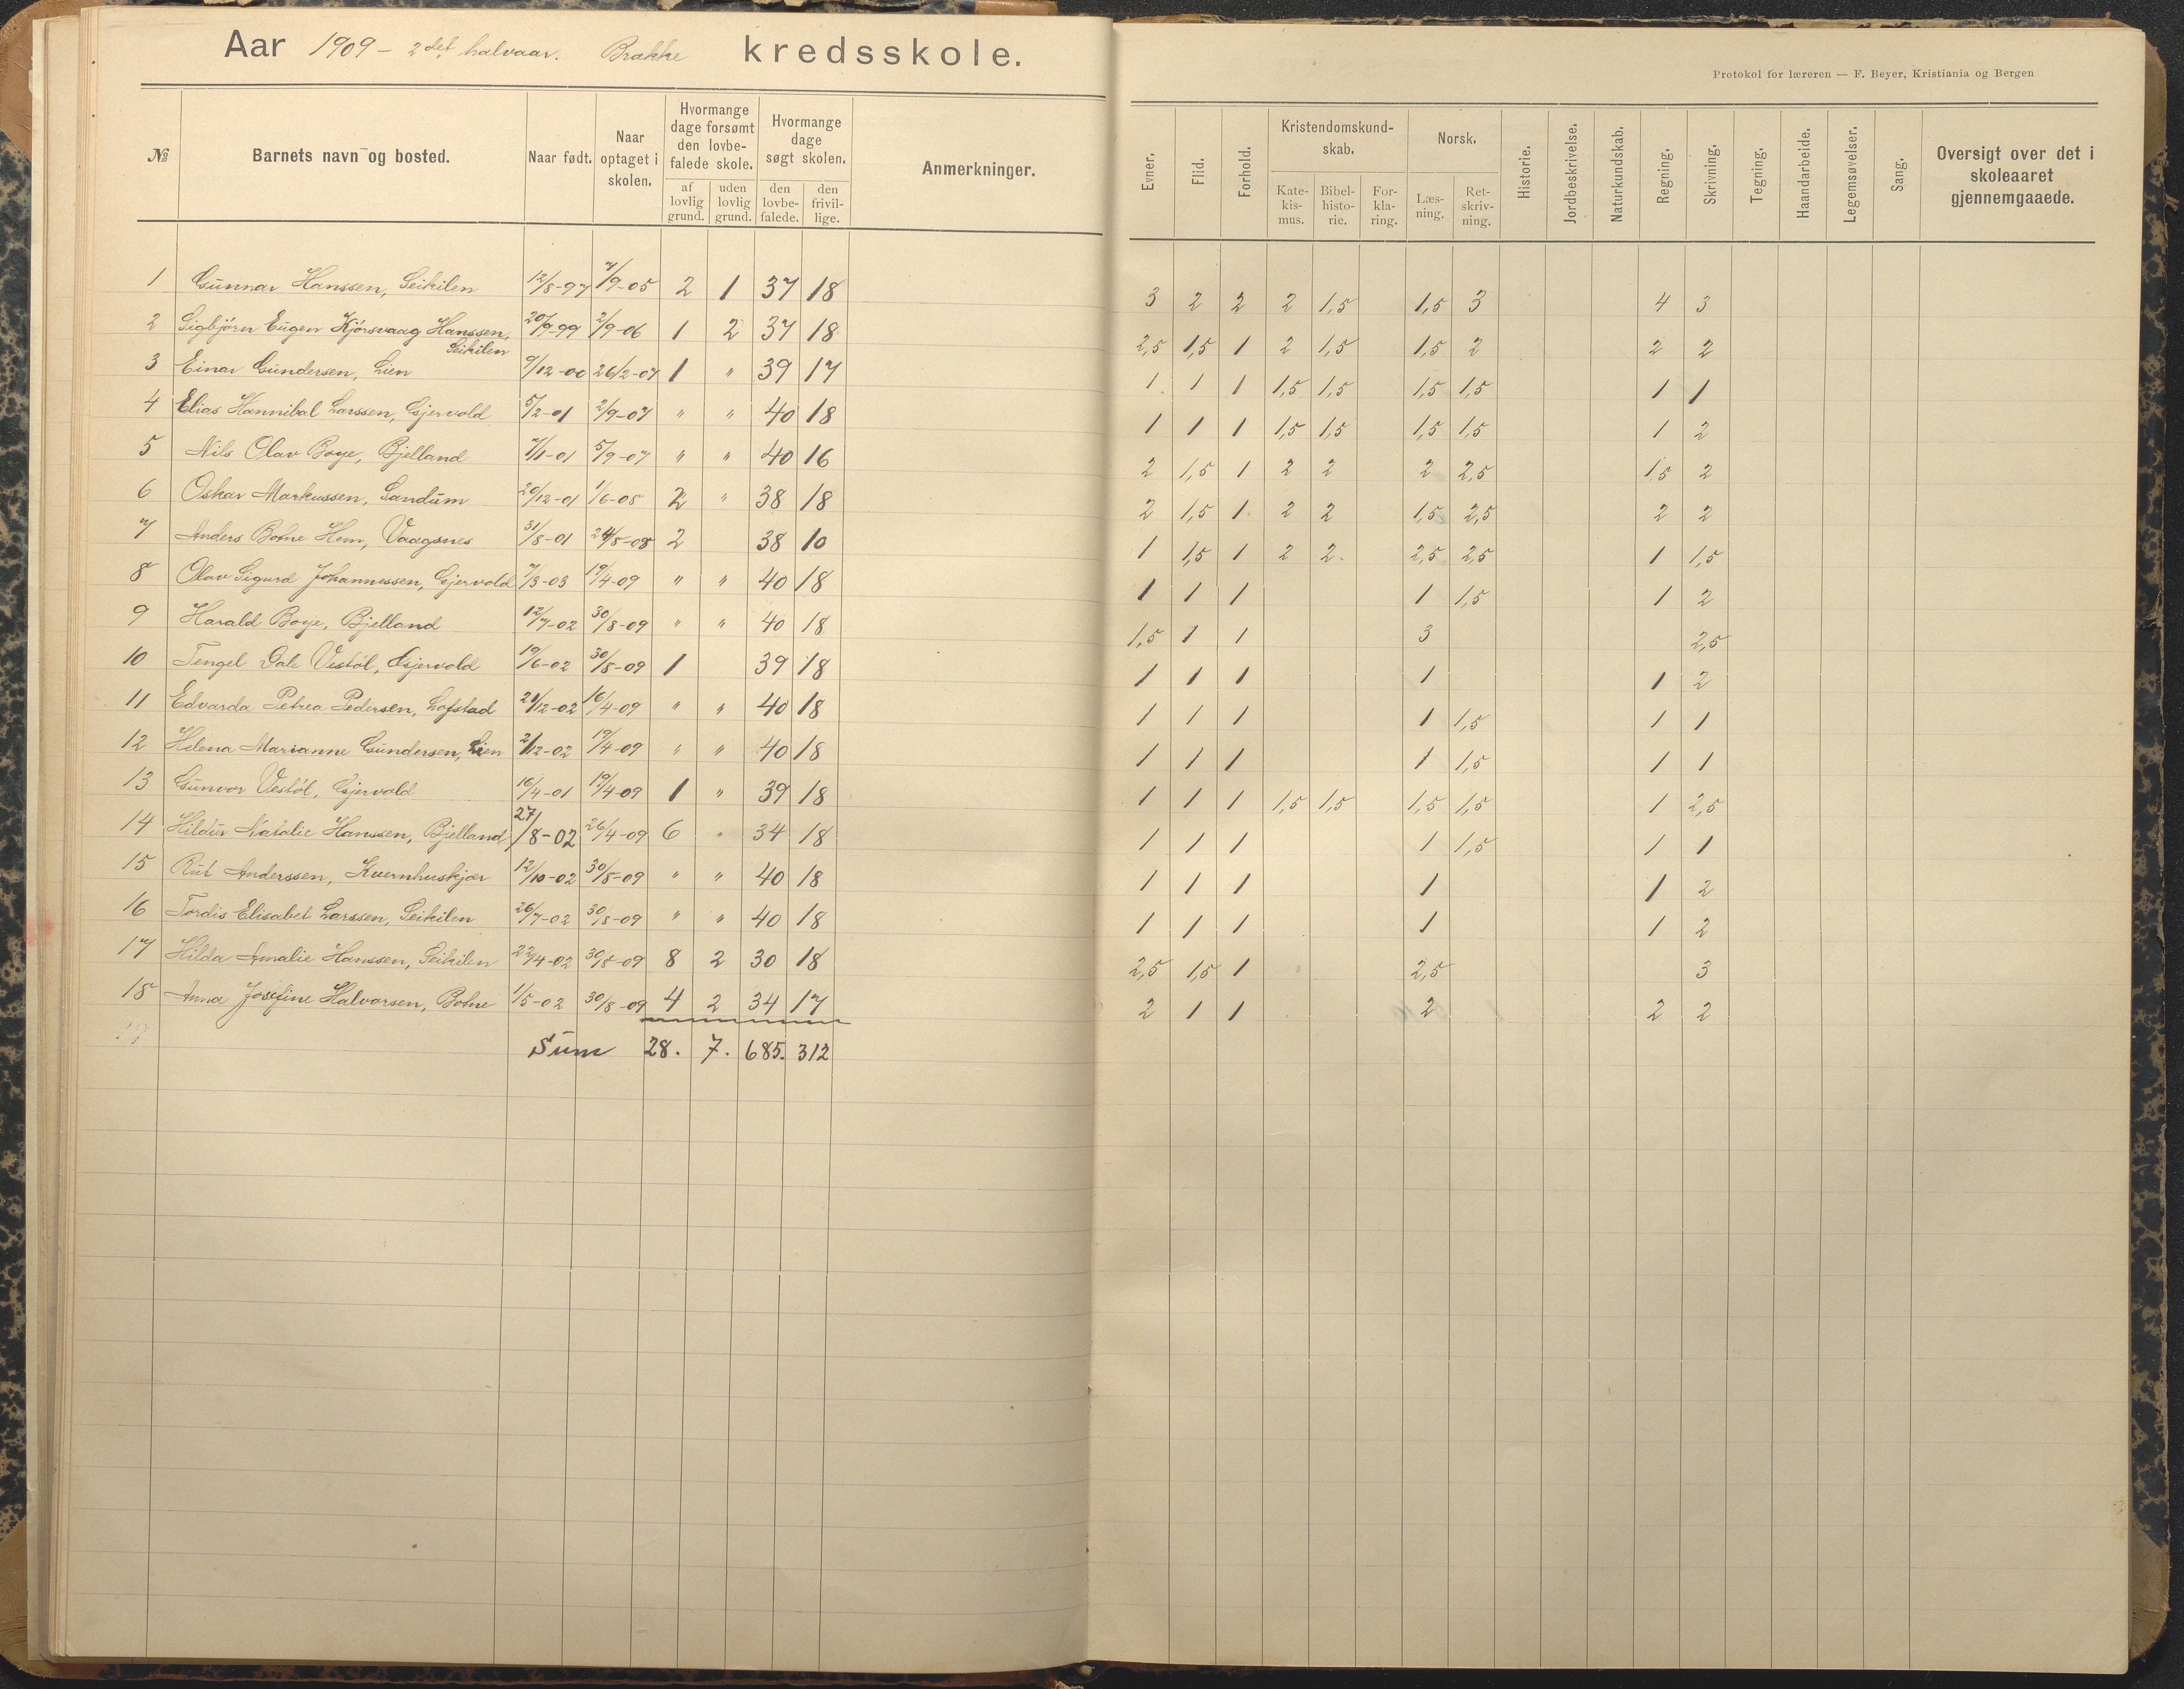 Aar 1909 – 2det halvaar. Brække kredsskole.
Protokol for læreren — F. Beyer, Kristiania og Bergen
№ Barnets navn og bosted. Naar født. Naar optaget i skolen. Hvormange dage forsømt den lovbefalede skole. af lovlig grund. uden lovlig grund. Hvormange dage søgt skolen. den lovbefalede. den frivillige. Anmerkninger. Evner. Flid. Forhold. Kristendomskundskab. Katekismus. Bibelhistorie. Forklaring. Norsk. Læsning. Retskrivning. Historie. Jordbeskrivelse. Naturkundskab. Regning. Skrivning. Tegning. Haandarbeide. Legemsøvelser. Sang. Oversigt over det i skoleaaret gjennemgaaede.
1 Gunnar Hanssen, Leikilen 12/8-97 7/9-05 2 1 37 18 3 2 2 2 1,5 1,5 3 4 3
2 Sigbjörn Eugen Kjörsvaag Hanssen, Leikilen 20/9-99 2/9-06 1 2 37 18 2,5 1,5 1 2 1,5 1,5 2 2 2
3 Einar Gundersen, Lien 9/12-00 26/2-07 1 " 39 17 1 1 1 1,5 1,5 1,5 1,5 1 1
4 Elias Hannibal Larssen, Gjervold 5/2-01 2/9-07 " " 40 18 1 1 1 1,5 1,5 1,5 1,5 1 2
5 Nils Olav Boye, Bjelland 7/1-01 5/9-07 " " 40 16 2 1,5 1 2 2 2 2,5 1,5 2
6 Oskar Markussen, Sandum 20/12-01 1/6-08 2 " 38 18 2 1,5 1 2 2 1,5 2,5 2 2
7 Anders Bohne Hem, Vaagsnes 31/8-01 24/8-08 2 38 10 1 1,5 1 2 2 2,5 2,5 1 1,5
8 Olav Sigurd Johannessen, Gjervold 7/3-03 19/4-09 " " 40 18 1 1 1 1 1,5 1 2
9 Harald Boye, Bjelland 12/7-02 30/8-09 " " 40 18 1,5 1 1 3 2,5
10 Tengel Dale Vestöl, Gjervold 19/6-02 30/8-09 1 39 18 1 1 1 1 1 2
11 Edvarda Petrea Pedersen, Lofstad 21/12-02 16/4-09 " " 40 18 1 1 1 1 1,5 1 1
12 Helena Marianne Gundersen, Lien 2/12-02 19/4-09 " " 40 18 1 1 1 1 1,5 1 1
13 Gunvor Vestöl, Gjervold 16/4-01 19/4-09 1 " 39 18 1 1 1 1,5 1,5 1,5 1,5 1 2,5
14 Hildur Natalie Hanssen, Bjelland 27/8-02 26/4-09 6 " 34 18 1 1 1 1 1,5 1 1
15 Rut Anderssen, Kvernhuskjær 12/10-02 30/8-09 " " 40 18 1 1 1 1 1 2
16 Tordis Elisabet Larssen, Leikilen 26/7-02 30/8-09 " " 40 18 1 1 1 1 1 2
17 Hilda Amalie Hanssen, Leikilen 22/4-02 30/8-09 8 2 30 18 2,5 1,5 1 2,5 3
18 Anna Josefine Halvorsen, Bohne 1/5-02 30/8-09 4 2 34 17 2 1 1 2 2 2
Sum 28. 7. 685. 312